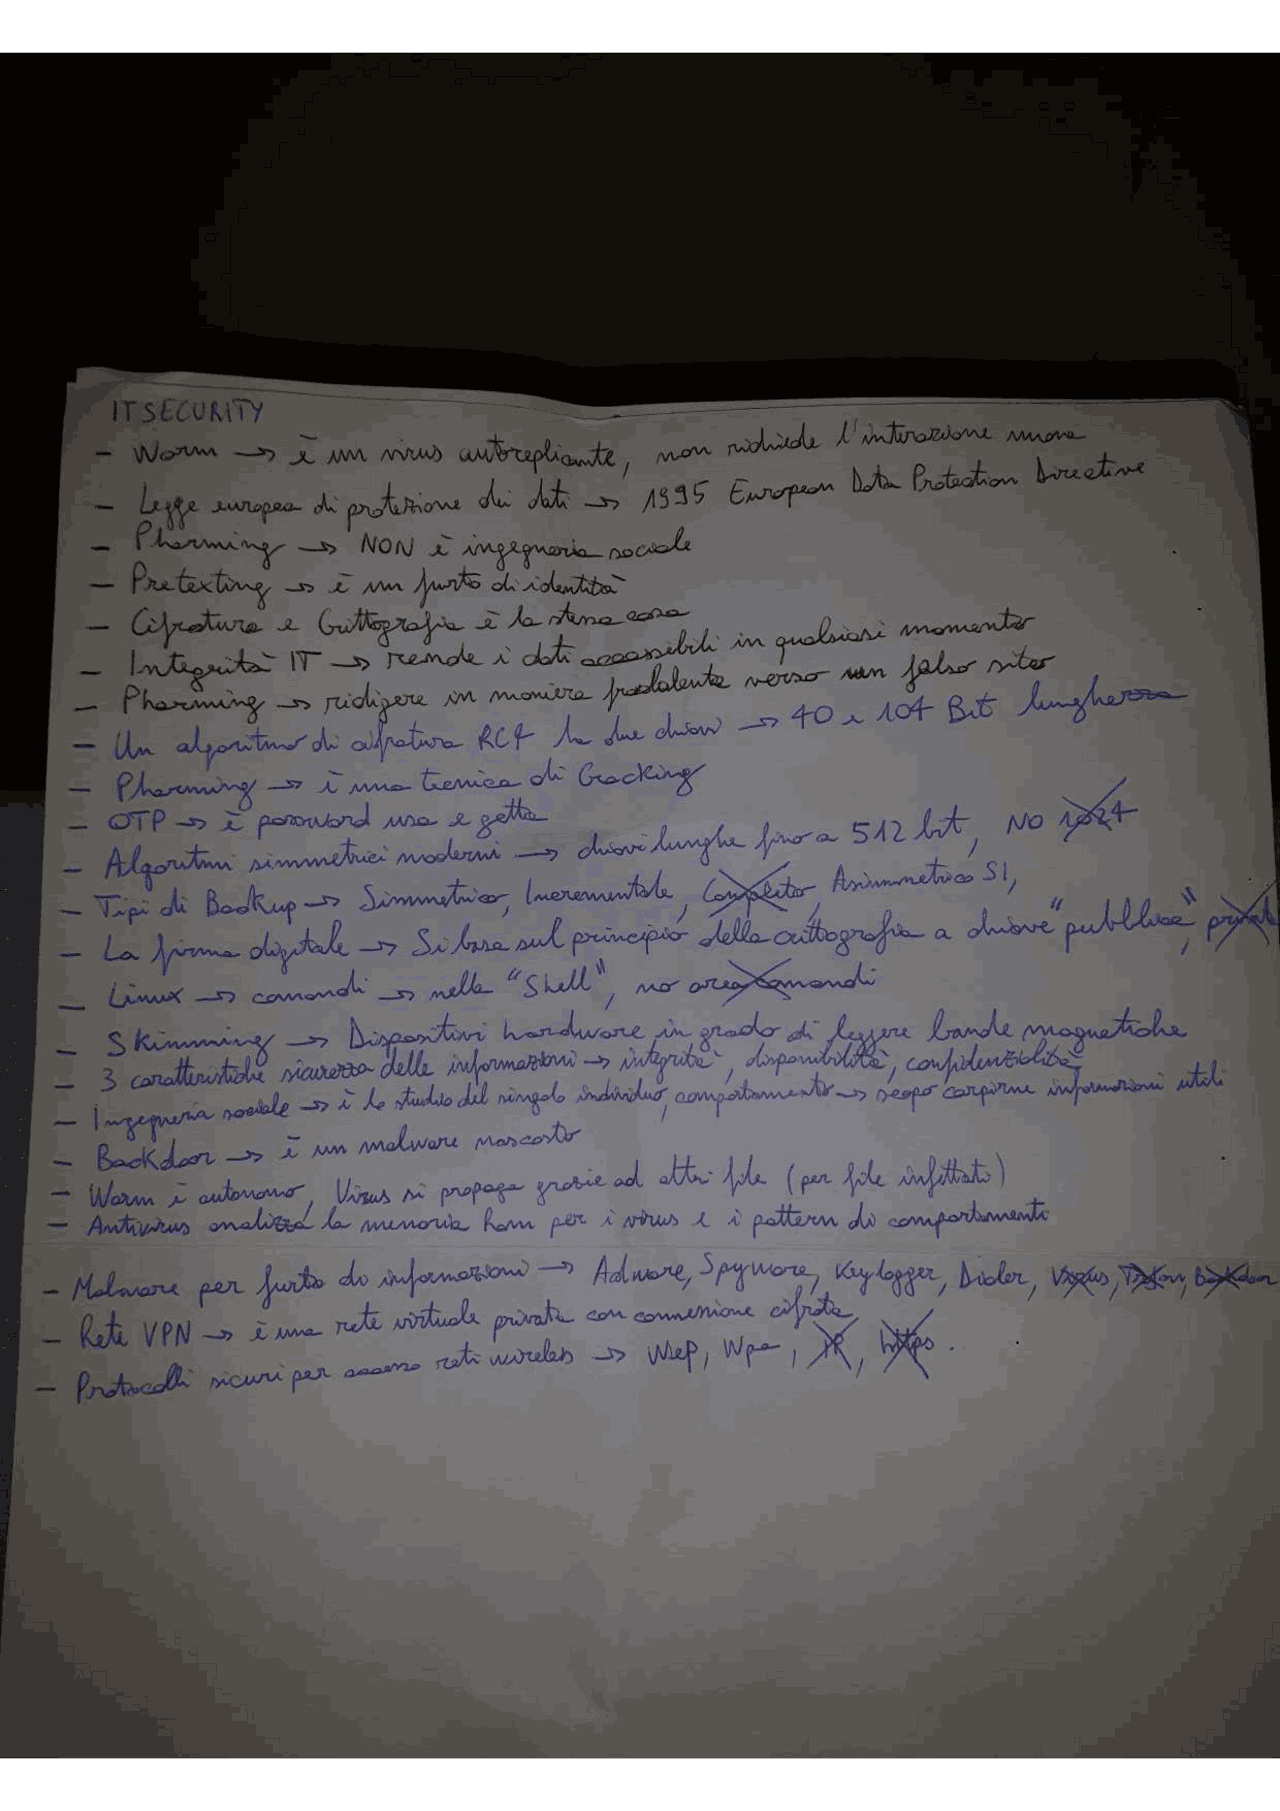 IT SECURITY
- Worm → è un virus autoreplicante, non richiede l'interazione
- Legge europea di protezione dei dati → 1995 European Data Protection Directive
- Pharming → NON è ingegneria sociale
- Pretexting → è un furto di identità
- Cifratura e Crittografia è la stessa cosa
- Integrità IT → rende i dati accessibili in qualsiasi momento
- Pharming → ridigere in maniera fradolenta verso un falso sito
- Un algoritmo di cifratura RC4 ha due chiavi → 40 e 104 Bit lunghezza
- Pharming → è una tecnica di Cracking
- OTP → è password usa e getta
- Algoritmi simmetrici moderni → chiavi lunghe fino a 512 bit, NO 1024
- Tipi di Backup → Simmetrico, Incrementale, Completo, Asimmetrico SI,
- La firma digitale → Si basa sul principio della crittografia a chiave "pubblica",
- Linux → comandi → nella "Shell", no area comandi
- Skimming → Dispositivi hardware in grado di leggere bande magnetiche
- 3 caratteristiche sicurezza delle informazioni → integrità, disponibilità, confidenzialità
- Ingegneria sociale → è lo studio del singolo individuo, comportamento → scopo carpirne informazioni utili
- Backdoor → è un malware nascosto
- Worm è autonomo, Virus si propaga grazie ad altri file (per file infettato)
- Antivirus analizza la memoria Ram per i virus e i pattern di comportamenti
- Malware per furto di informazioni → Adware, Spyware, Keylogger, Dialer, Virus, Trojan, Backdoor
- Rete VPN → è una rete virtuale privata con connessione cifrata
- Protocolli sicuri per accesso reti wireless → Wep, Wpa, IP, https.